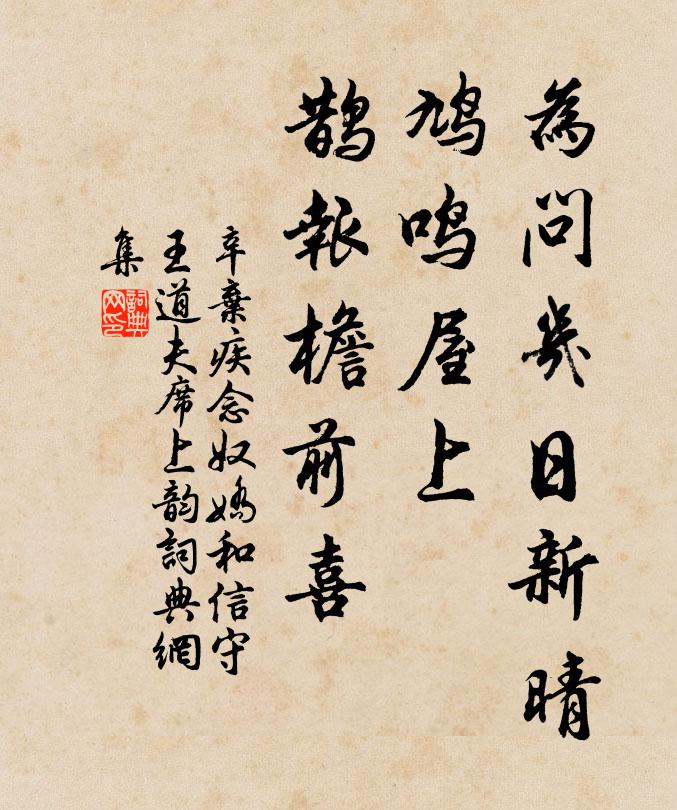 為問幾日新晴
鳩鳴屋上
鵲報檐前喜
辛棄疾念奴嬌和信守
王道夫席上韵詞典網
集
詞典
网印